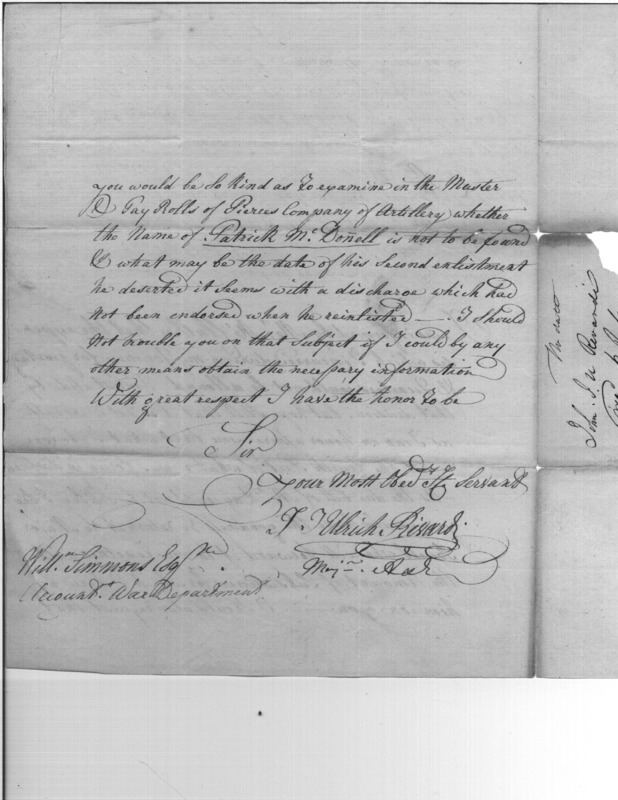 you would be So Kind as to examine in the Muster
& Pay Rolls of Pierces Company of Artillery whether
the Name of Patrick Mc Donell is not to be found
& what may be the date of his Second enlistment
he deserted it Seems with a discharge which had
not been endorsed when he reinlisted —. I Should
not trouble you on that Subject if I could by any
other means obtain the necessary information
With great respect I have the honor to be
Sir
your Most Obedt Ht Servant
J J Ulrich Rivardi
Majr A&E
Willm Simmons Esqre
Accountt War Department
No date
John J. U Rivardi